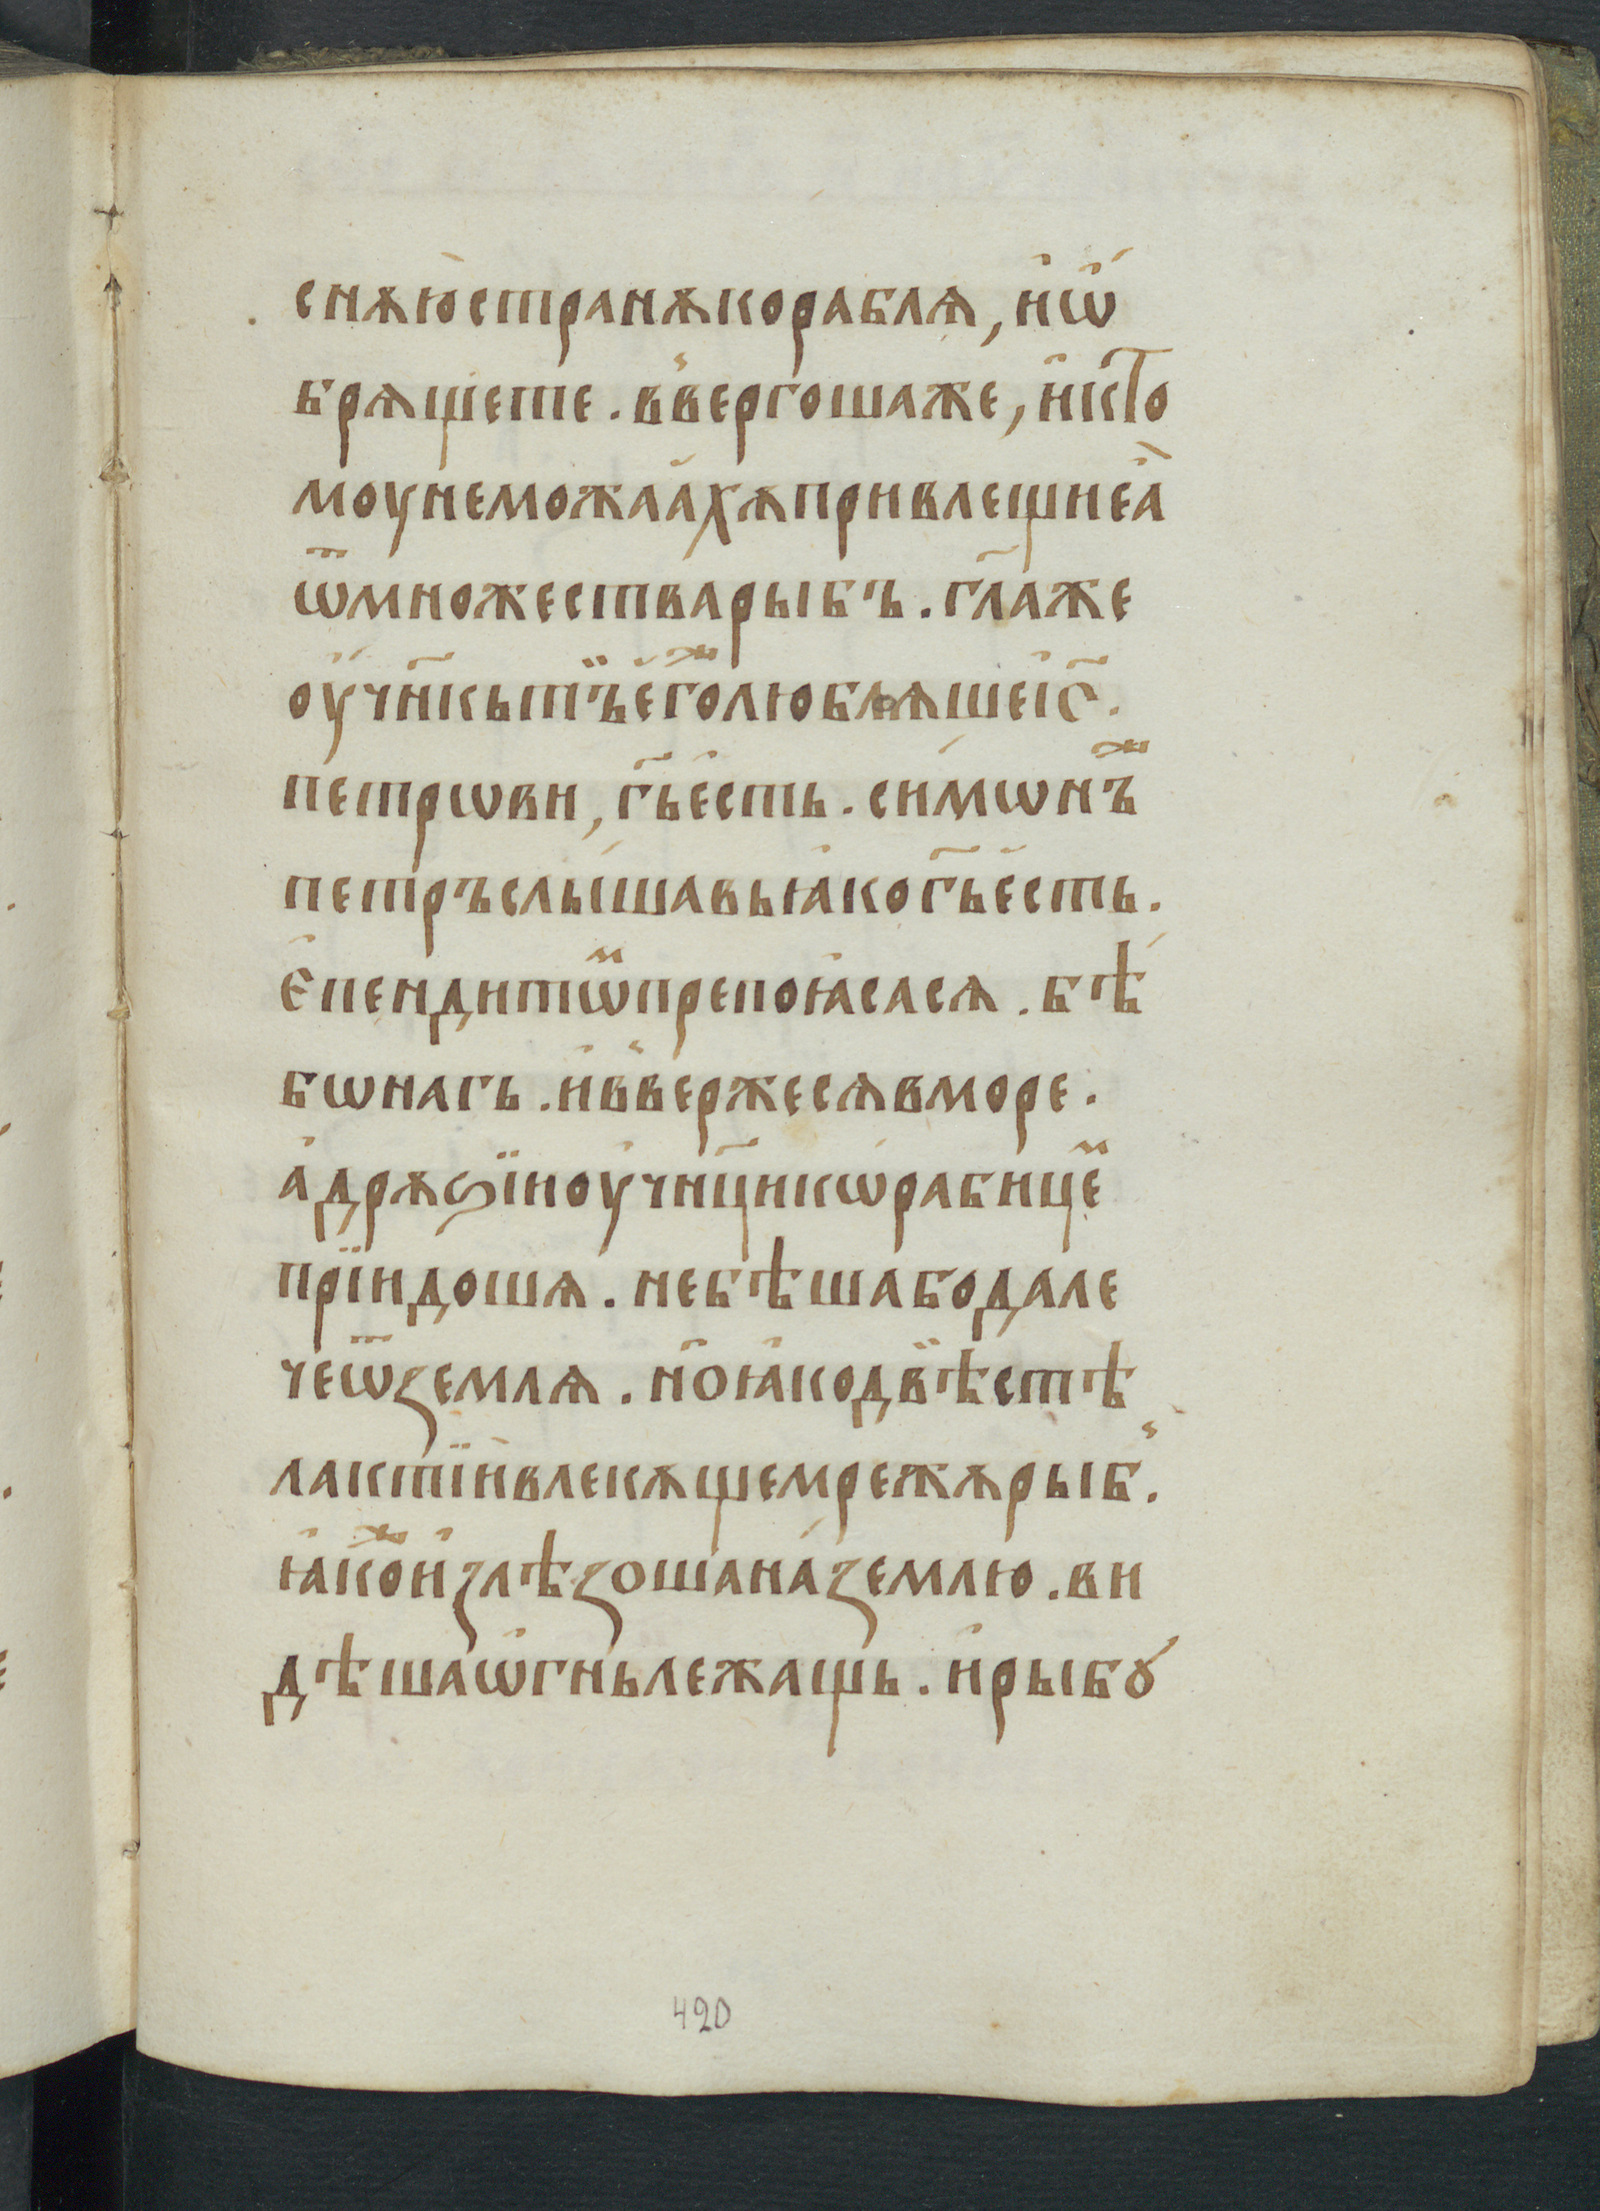 снѫю̀странѫкораблѧ, и҆ѡ҆́
брѧщете. в̾вергошаже, и҆ктⷭ҇о
моунеможаа҆хѫпривлещиеа҆̀
ѿмножестварыбъ. гл҃аже
оу҆чн҃кьтъⷤе҆голюблѧшеі҆с҃.
петрѡви, г҃ье҆сть. си́мѡнъⷤ
петръслы́шавьꙗ҆ког҃ье҆сть.
Е҆пендитѡⷨпрепоꙗ҆сасѧ. бѣ́
бѡнагь. и҆в̾вержесѧвморе.
а҆дрѫѕїиоу҆чн҃цикѡ҆рабицеⷨ
прїидошѧ. небѣшабодале
чеѿземлѧ. но҆ꙗ҆кодвѣстѣ
лактїѝвлекѫщемрежѫрыб̾.
ꙗ҆кⷤои҆злѣзошана́землю. ви
дѣшаѡ҆гньлежащь. и҆рыбꙋ́
420